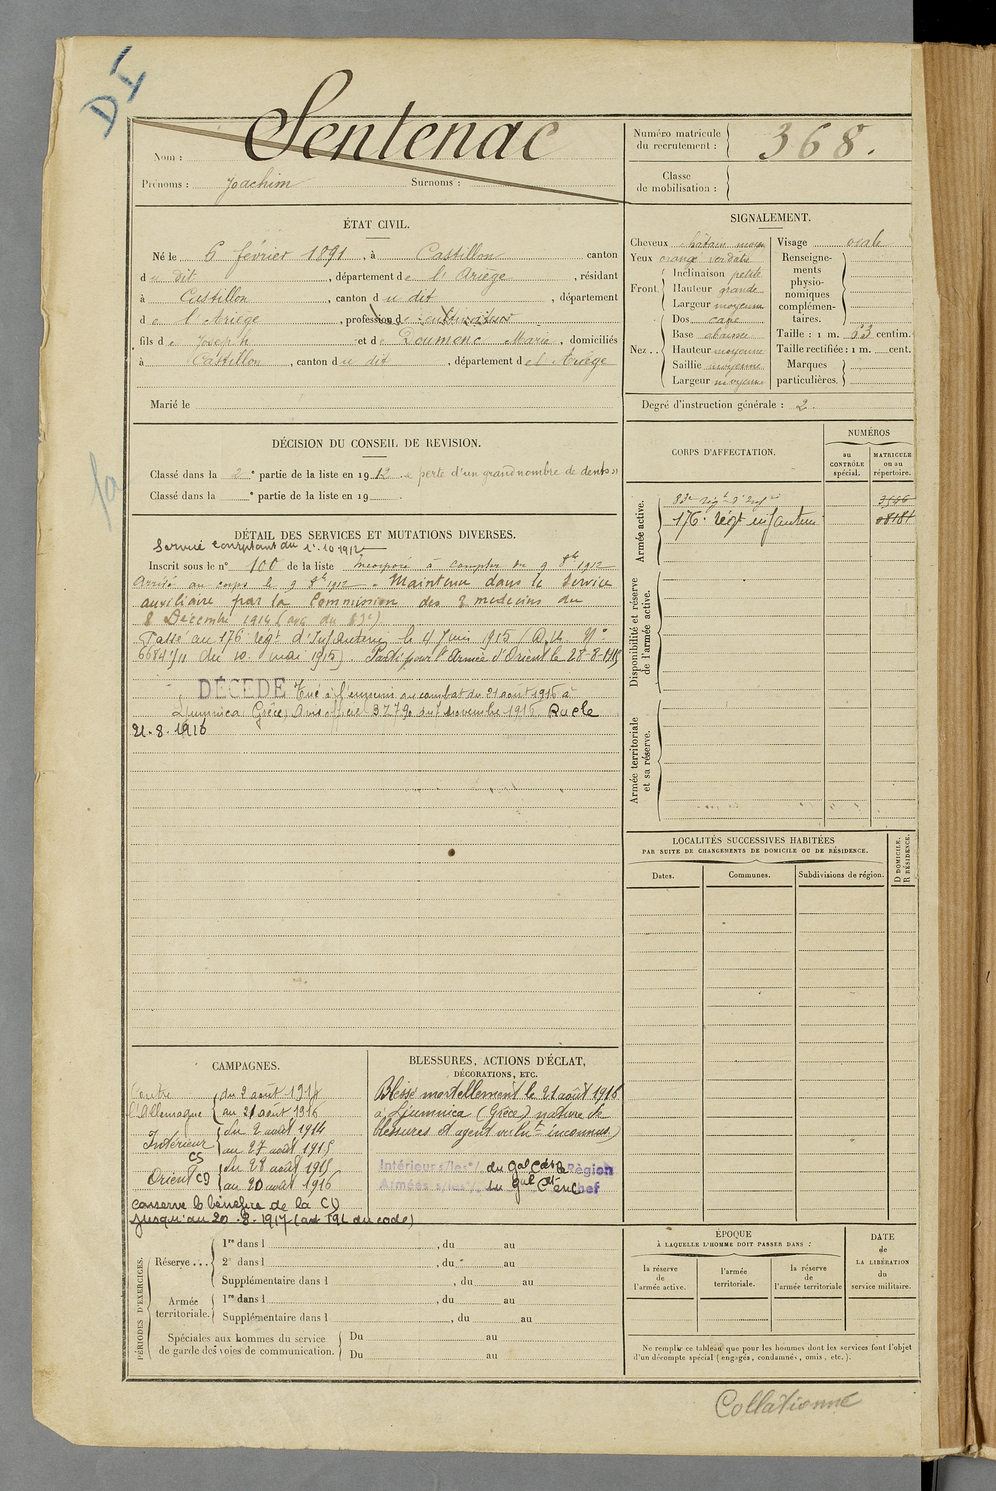 DI
Nom : Sentenac
Prénoms : Joachim Surnoms :
Numéro matricule
du recrutement : 368.
Classe
de mobilisation :
ÉTAT CIVIL.
Né le 6 février 1891, à Castillon canton
du dit, département de l'Ariège, résidant
à Castillon, canton du dit, département
de l'Ariège, profession de cultivateur
fils de Joseph et de Doumenc Marie, domiciliés
à Castillon, canton du dit, département de l'Ariège
Marié le
SIGNALEMENT.
Cheveux châtain moyen
Yeux orangé verdatre
Front. Inclinaison petite
Hauteur grande
Largeur moyenne
Nez Dos cave
Base abaissée
Hauteur moyenne
Saillie moyenne
Largeur moyenne
Visage ovale
Renseigne-
ments
physio-
nomiques
complémen-
taires.
Taille : 1 m. 63 centim.
Taille rectifiée : 1 m. cent.
Marques
particulières.
Degré d'instruction générale : 2.
DÉCISION DU CONSEIL DE REVISION.
Classé dans la 2e partie de la liste en 1912 « perte d'un grand nombre de dents »
Classé dans la e partie de la liste en 19 .
DÉTAIL DES SERVICES ET MUTATIONS DIVERSES.
Service comptant du 1er.10 1912
Inscrit sous le n° 100 de la liste Incorporé à compter du 9 8bre 1912
Arrivé au corps le 9 8bre 1912. Maintenu dans le service
auxiliaire par la Commission des 3 medecins du
8 Décembre 1914 (avis du 83e)
Passé au 176e régt d'Infanterie le 4 Juin 1915 (D.M. N°
6684 1/11 du 10 mai 1915). Parti pour l'Armée d'Orient le 28-8-1915
DÉCÉDÉ Tué à l'ennemi au combat du 21 août 1916 à
Ljumnica Grèce, Avis officiel 3779 du novembre 1916. Rayé le
21.8.1916
CORPS D'AFFECTATION.
NUMÉROS
au
CONTRÔLE
spécial.
MATRICULE
ou au
répertoire.
Armée active.
83e régt d'Infie 3546
176e régt infanterie 08181
Disponibilité et réserve
de l'armée active.
Armée territoriale
et sa réserve.
LOCALITÉS SUCCESSIVES HABITÉES
PAR SUITE DE CHANGEMENTS DE DOMICILE OU DE RÉSIDENCE.
D DOMICILE,
R RÉSIDENCE.
Dates. Communes. Subdivisions de région.
CAMPAGNES.
Contre du 2 août 1914
l'Allemagne au 21 août 1916
Intérieur du 2 août 1914
CS au 27 août 1915
Orient CD du 28 août 1915
au 20 août 1916
conserve le bénéfice de la CD
jusqu'au 20.8.1917 (art 196 du code)
BLESSURES, ACTIONS D'ÉCLAT,
DÉCORATIONS, ETC.
Blessé mortellement le 21 août 1916
à Ljumnica (Grèce) nature de
blessures et agent vulnt inconnus)
Intérieur s/les o/ du Gal Cdt la Région
Armées s/les o/ du Gal Ct en Chef
PÉRIODES D'EXERCICES.
Réserve ... 1re dans l , du au
2e dans l , du au
Supplémentaire dans l , du au
Armée
territoriale. 1re dans l , du au
Supplémentaire dans l , du au
Spéciales aux hommes du service
de garde des voies de communication. Du au
Du au
ÉPOQUE
À LAQUELLE L'HOMME DOIT PASSER DANS :
la réserve
de
l'armée active.
l'armée
territoriale.
la réserve
de
l'armée territoriale
DATE
de
LA LIBÉRATION
du
service militaire.
Ne remplir ce tableau que pour les hommes dont les services font l'objet
d'un décompte spécial (engagés, condamnés, omis, etc.).
Collationné